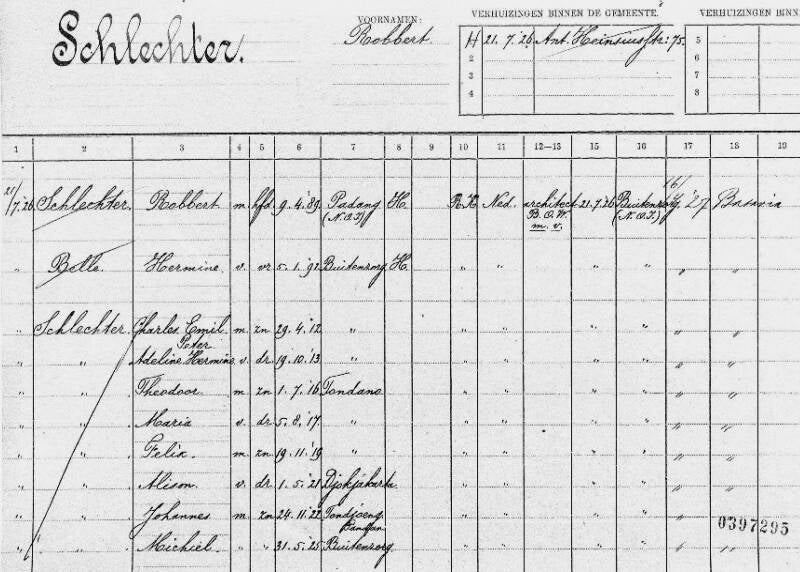 Schlechter.
VOORNAMEN:
Robbert.
VERHUIZINGEN BINNEN DE GEMEENTE.
VERHUIZINGEN BINN
H 21.7.26 Ant. Heinsiusstr: 75.
2
3
4
5
6
7
8
1 2 3 4 5 6 7 8 9 10 11 12–13 15 16 17 18 19
21/7.26 Schlechter. Robbert m. hfd 9.4.'89 Padang (N.O.I) H. R.K Ned. architect B.O.W. m. v. 21.7.'26 Buitenzorg (N.O.I.) '27 Batavia
„ Belle. Hermine v. vr 5.1.'92 Buitenzorg H. „ „ „ „ „ „
„ Schlechter. Charles Emil Peter m. zn 29.4.'12 „ „ „ „ „ „ „
„ „ Adeline Hermine v. dr 19.10.'13 „ „ „ „ „ „ „
„ „ Theodoor m. zn 1.7.'16 Tondano „ „ „ „ „ „
„ „ Maria v. dr 5.8.'17. „ „ „ „ „ „ „
„ „ Felix m. zn 19.11.'19 „ „ „ „ „ „ „
„ „ Alison v. dr. 1.5.'21 Djokjakarta „ „ „ „ „ „
„ „ Johannes m. zn 24.11.'22 Tandjoeng „ „ „ „ „ „
„ „ Michiel „ „ 31.5.'25 Buitenzorg „ „ „ „ „ „
0397295